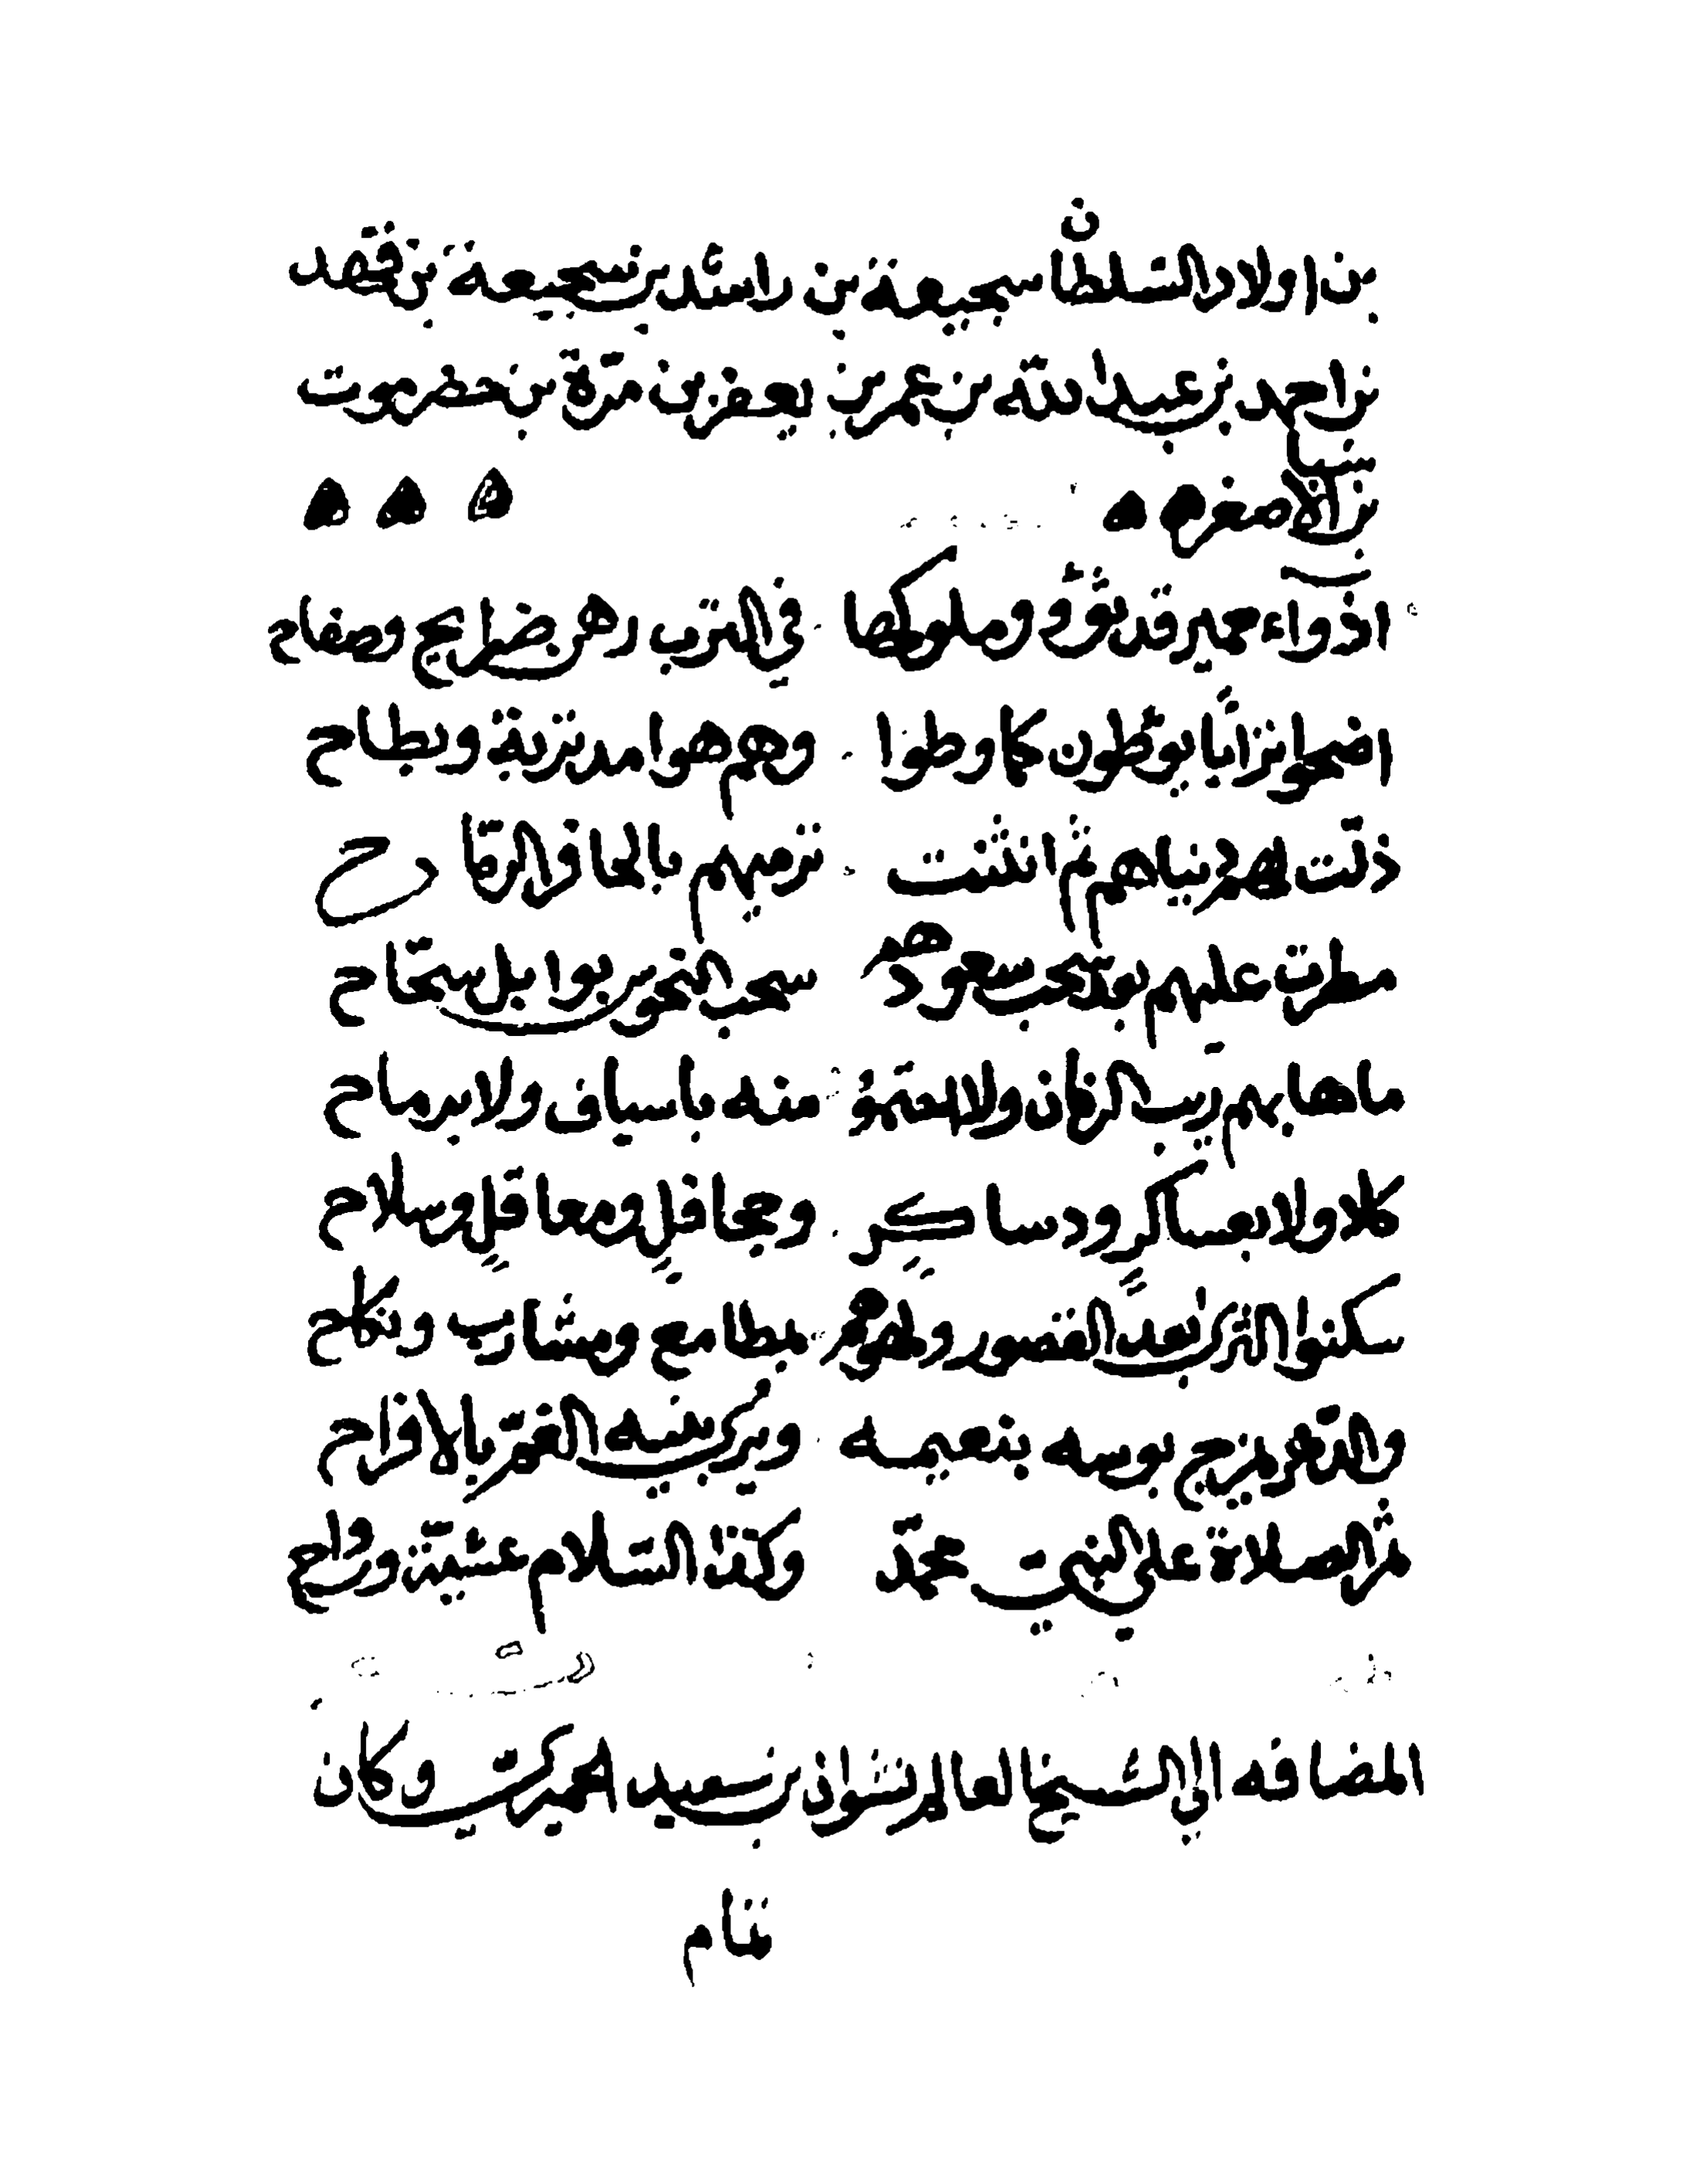 من اولاد السلطان سجيعة بن راشد بن سجيعة بن فهد
بن احمد بن عبدالله بن عمر بن يعفر بن مرة بن حضرموت
بن سبا الاصغر
اذواء حمير قد ثووا وملوكها في الترب رهن ضرايح وصفاح
اضحوا ترابا يوطون كما وطوا وهم هوامد تربة وبطاح
ذلت لهم دنياهم ثم انثنت ترميهم بالحافر الرماح
مطرت عليهم بعد سحب سعودهم سحب النحوس بوابل سحاح
ما هابهم ريب الزمان ولا احتموا منه باسياف ولا برماح
كلا ولا بعساكرٍ ودساكرٍ وجحافلٍ ومعاقلٍ وسلاح
سكنوا الثرى بعد القصور ولهوهم بمطاعم ومشارب ونكاح
والدهر يمزج بوسه بنعيمه ويرى بنيه الغم بالافراح
ثم الصلاة على النبي محمد وكذا السلام عشية ورواح
المضافه الى الشيخ العالم نشوان بن سعيد الحميري وكان
تمام